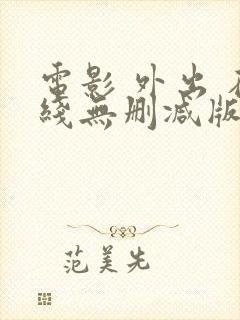 電影 外出 在
綫無删减版
范美先